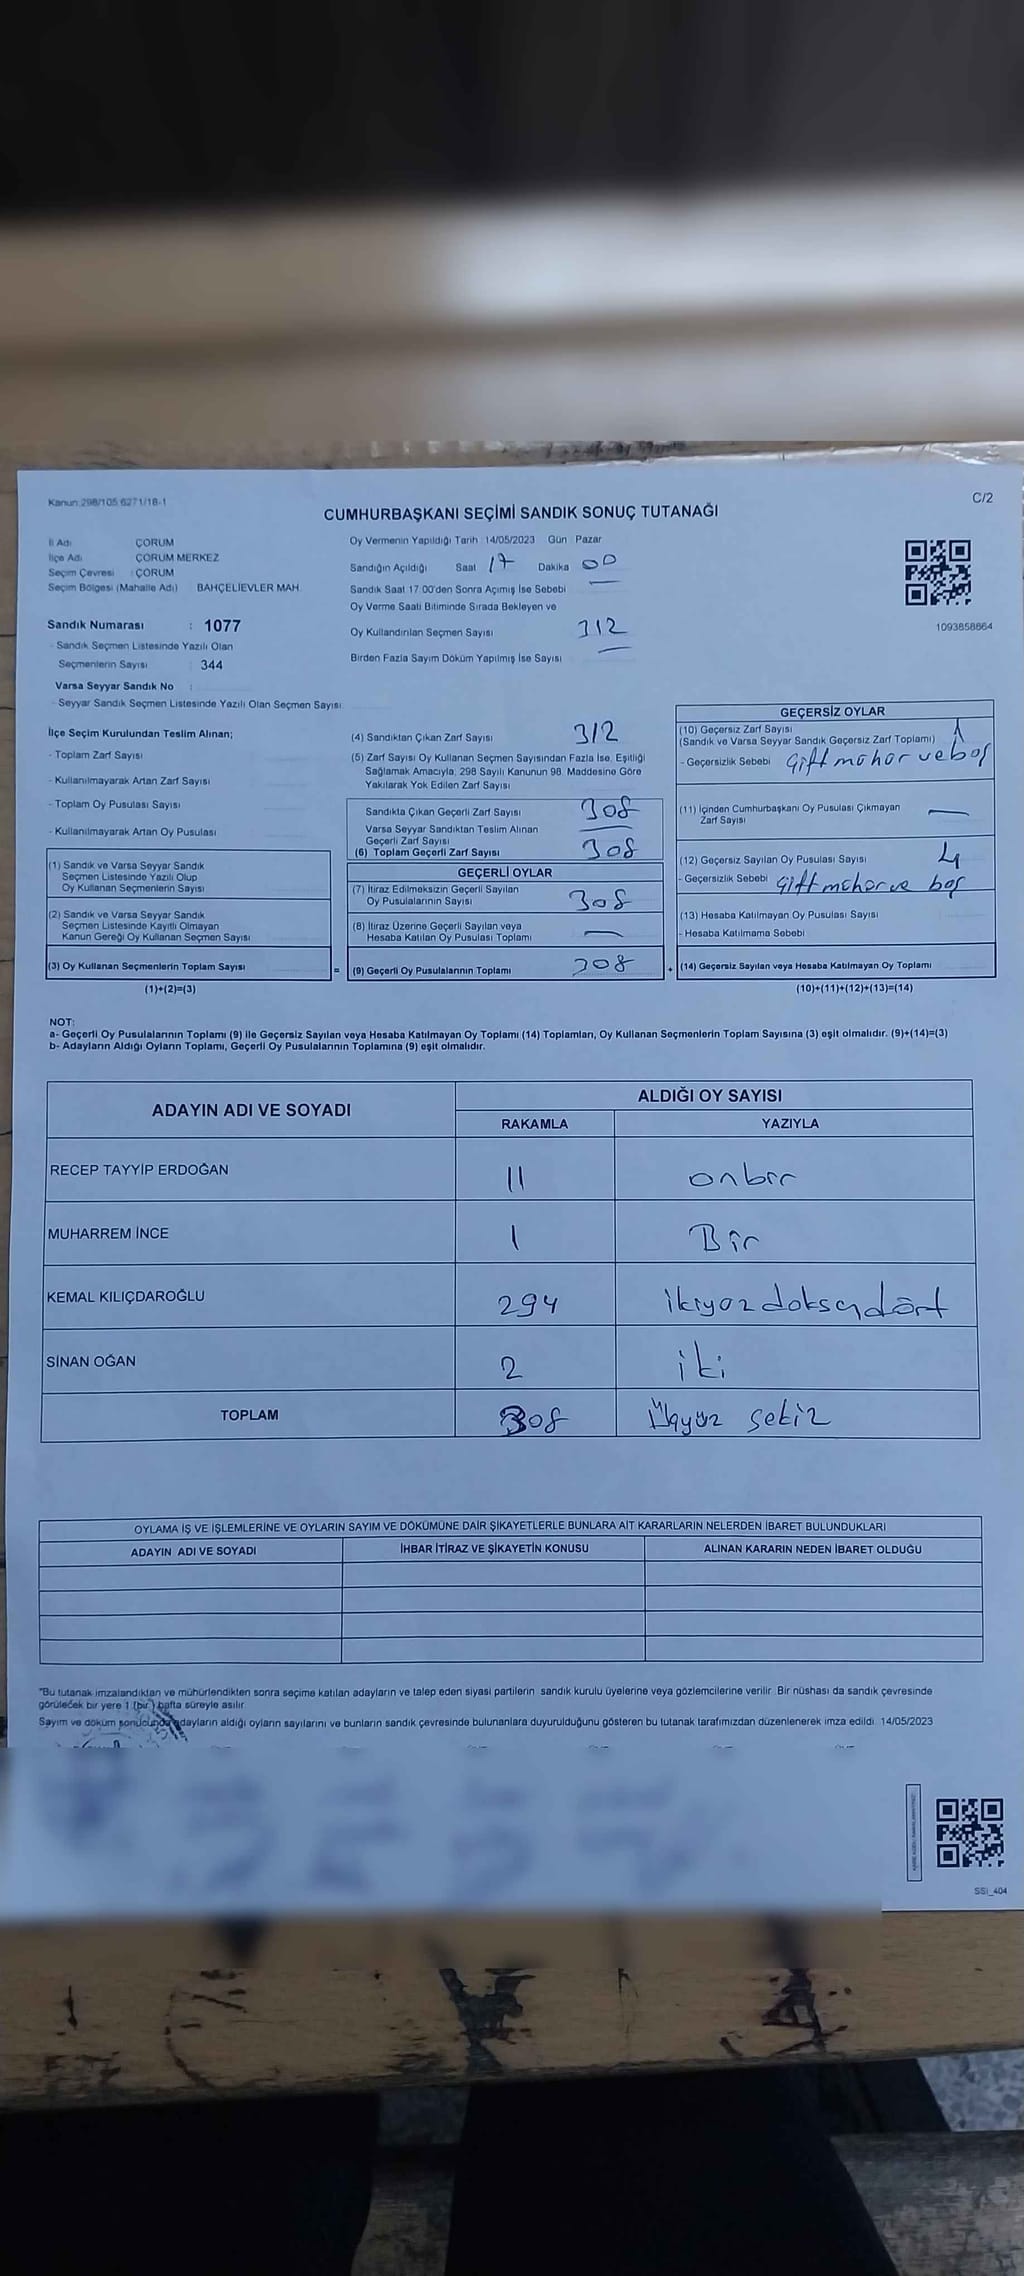 Kanun:298/105.6271/18-1
C/2
CUMHURBAŞKANI SEÇİMİ SANDIK SONUÇ TUTANAĞI
İl Adı ÇORUM
İlçe Adı ÇORUM MERKEZ
Seçim Çevresi : ÇORUM
Seçim Bölgesi (Mahalle Adı) BAHÇELİEVLER MAH.
Oy Vermenin Yapıldığı Tarih :14/05/2023 Gün Pazar
Sandığın Açıldığı Saat 17 Dakika 00
Sandık Saat 17.00'den Sonra Açımış İse Sebebi —
Oy Verme Saati Bitiminde Sırada Bekleyen ve
Oy Kullandırılan Seçmen Sayısı 312
Birden Fazla Sayım Döküm Yapılmış İse Sayısı —
1093858664
Sandık Numarası : 1077
- Sandık Seçmen Listesinde Yazılı Olan
Seçmenlerin Sayısı 344
Varsa Seyyar Sandık No :
- Seyyar Sandık Seçmen Listesinde Yazılı Olan Seçmen Sayısı
İlçe Seçim Kurulundan Teslim Alınan;
- Toplam Zarf Sayısı
- Kullanılmayarak Artan Zarf Sayısı
- Toplam Oy Pusulası Sayısı
- Kullanılmayarak Artan Oy Pusulası
(1) Sandık ve Varsa Seyyar Sandık
Seçmen Listesinde Yazılı Olup
Oy Kullanan Seçmenlerin Sayısı
(2) Sandık ve Varsa Seyyar Sandık
Seçmen Listesinde Kayıtlı Olmayan
Kanun Gereği Oy Kullanan Seçmen Sayısı
(3) Oy Kullanan Seçmenlerin Toplam Sayısı
(1)+(2)=(3)
(4) Sandıktan Çıkan Zarf Sayısı 312
(5) Zarf Sayısı Oy Kullanan Seçmen Sayısından Fazla İse, Eşitliği
Sağlamak Amacıyla, 298 Sayılı Kanunun 98. Maddesine Göre
Yakılarak Yok Edilen Zarf Sayısı
Sandıkta Çıkan Geçerli Zarf Sayısı 308
Varsa Seyyar Sandıktan Teslim Alınan
Geçerli Zarf Sayısı —
(6) Toplam Geçerli Zarf Sayısı 308
GEÇERLİ OYLAR
(7) İtiraz Edilmeksizin Geçerli Sayılan
Oy Pusulalarının Sayısı 308
(8) İtiraz Üzerine Geçerli Sayılan veya
Hesaba Katılan Oy Pusulası Toplamı —
= (9) Geçerli Oy Pusulalarının Toplamı 308
GEÇERSİZ OYLAR
(10) Geçersiz Zarf Sayısı
(Sandık ve Varsa Seyyar Sandık Geçersiz Zarf Toplamı)
- Geçersizlik Sebebi Çift mühür ve boş
(11) İçinden Cumhurbaşkanı Oy Pusulası Çıkmayan
Zarf Sayısı —
(12) Geçersiz Sayılan Oy Pusulası Sayısı 4
- Geçersizlik Sebebi Çift mühür ve boş
(13) Hesaba Katılmayan Oy Pusulası Sayısı
- Hesaba Katılmama Sebebi
+ (14) Geçersiz Sayılan veya Hesaba Katılmayan Oy Toplamı
(10)+(11)+(12)+(13)=(14)
NOT:
a- Geçerli Oy Pusulalarının Toplamı (9) ile Geçersiz Sayılan veya Hesaba Katılmayan Oy Toplamı (14) Toplamları, Oy Kullanan Seçmenlerin Toplam Sayısına (3) eşit olmalıdır. (9)+(14)=(3)
b- Adayların Aldığı Oyların Toplamı, Geçerli Oy Pusulalarının Toplamına (9) eşit olmalıdır.
ADAYIN ADI VE SOYADI
ALDIĞI OY SAYISI
RAKAMLA YAZIYLA
RECEP TAYYİP ERDOĞAN 11 onbir
MUHARREM İNCE 1 Bir
KEMAL KILIÇDAROĞLU 294 ikiyüzdoksandört
SİNAN OĞAN 2 iki
TOPLAM 308 Üçyüz sekiz
OYLAMA İŞ VE İŞLEMLERİNE VE OYLARIN SAYIM VE DÖKÜMÜNE DAİR ŞİKAYETLERLE BUNLARA AİT KARARLARIN NELERDEN İBARET BULUNDUKLARI
ADAYIN ADI VE SOYADI İHBAR İTİRAZ VE ŞİKAYETİN KONUSU ALINAN KARARIN NEDEN İBARET OLDUĞU
"Bu tutanak imzalandıktan ve mühürlendikten sonra seçime katılan adayların ve talep eden siyasi partilerin sandık kurulu üyelerine veya gözlemcilerine verilir. Bir nüshası da sandık çevresinde
görülecek bir yere 1 (bir) hafta süreyle asılır.
Sayım ve döküm sonucunda adayların aldığı oyların sayılarını ve bunların sandık çevresinde bulunanlara duyurulduğunu gösteren bu tutanak tarafımızdan düzenlenerek imza edildi. 14/05/2023
SSI_404